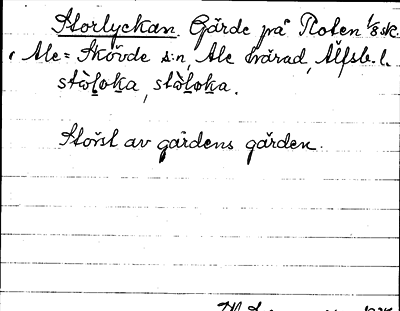 Storlyckan. Gärde på Roten 1/8 sk.
i Ale=Skövde s:n, Ale härad, Älfsb. l.
stòḷoka, stòḷoka.
Störst av gårdens gärden.